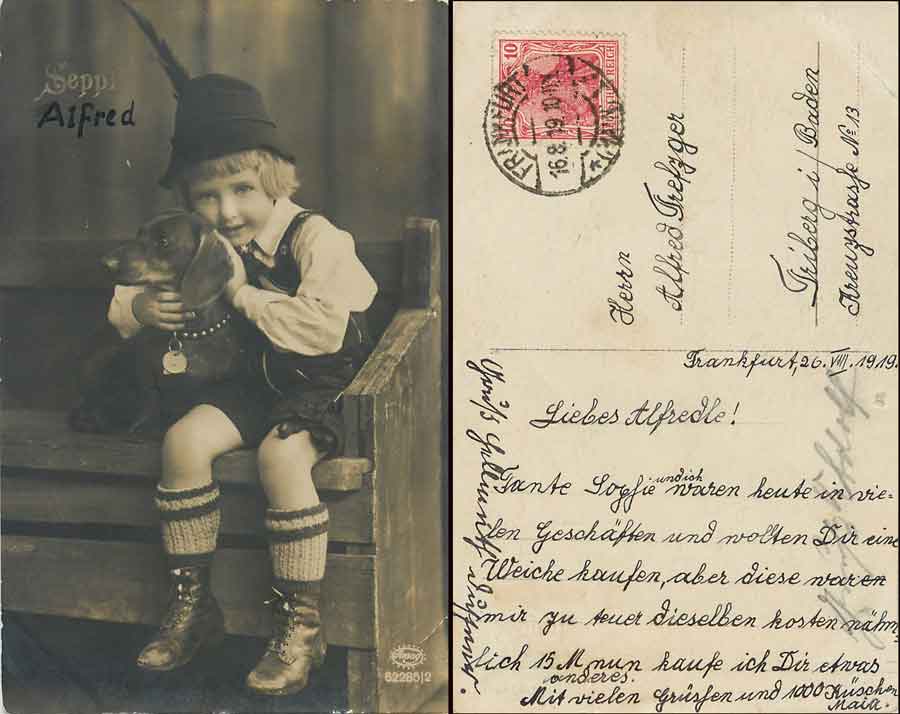 Seppl
Alfred
Amag
62285|2
10
DEUTSCHES REICH
FRANKFURT
16.8.19.10-11
(MAIN)
Herrn
Alfred Trefzger
Triberg i/Baden
Kreuzstrasse No 13
Frankfurt, 26. VIII. 1919.
Liebes Alfredle!
Tante Sophie und ich waren heute in vie-
len Geschäften und wollten Dir eine
Weiche kaufen, aber diese waren
mir zu teuer dieselben kosten nähm
lich 15 M. nun kaufe ich Dir etwas
anderes.
Mit vielen Grüssen und 1000 Küschen
Maia.
Gruß Hellmuth